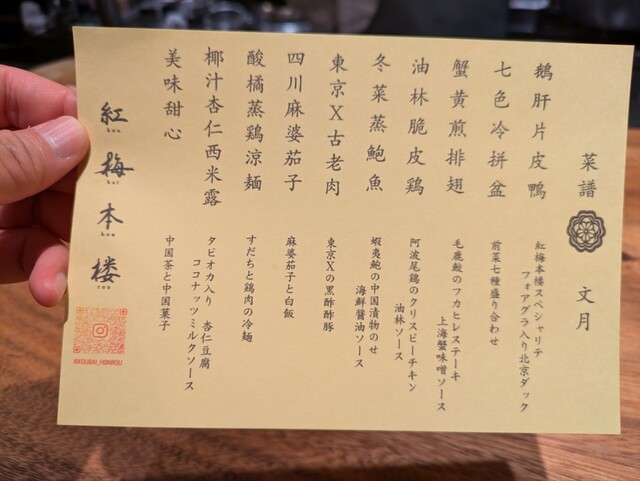 菜譜
文月
鵝肝片皮鴨
紅梅本楼スペシャリテ
フォアグラ入り北京ダック
七色冷拼盆
前菜七種盛り合わせ
蟹黄煎排翅
毛鹿鮫のフカヒレステーキ
上海蟹味噌ソース
油林脆皮鶏
阿波尾鶏のクリスピーチキン
油林ソース
冬菜蒸鮑魚
蝦夷鮑の中国漬物のせ
海鮮醤油ソース
東京X古老肉
東京Xの黒酢酢豚
四川麻婆茄子
麻婆茄子と白飯
酸橘蒸鶏涼麺
すだちと鶏肉の冷麺
椰汁杏仁西米露
タピオカ入り 杏仁豆腐
ココナッツミルクソース
美味甜心
中国茶と中国菓子
紅梅本楼
kou
bai
hon
rou
@KOUBAI_HONROU